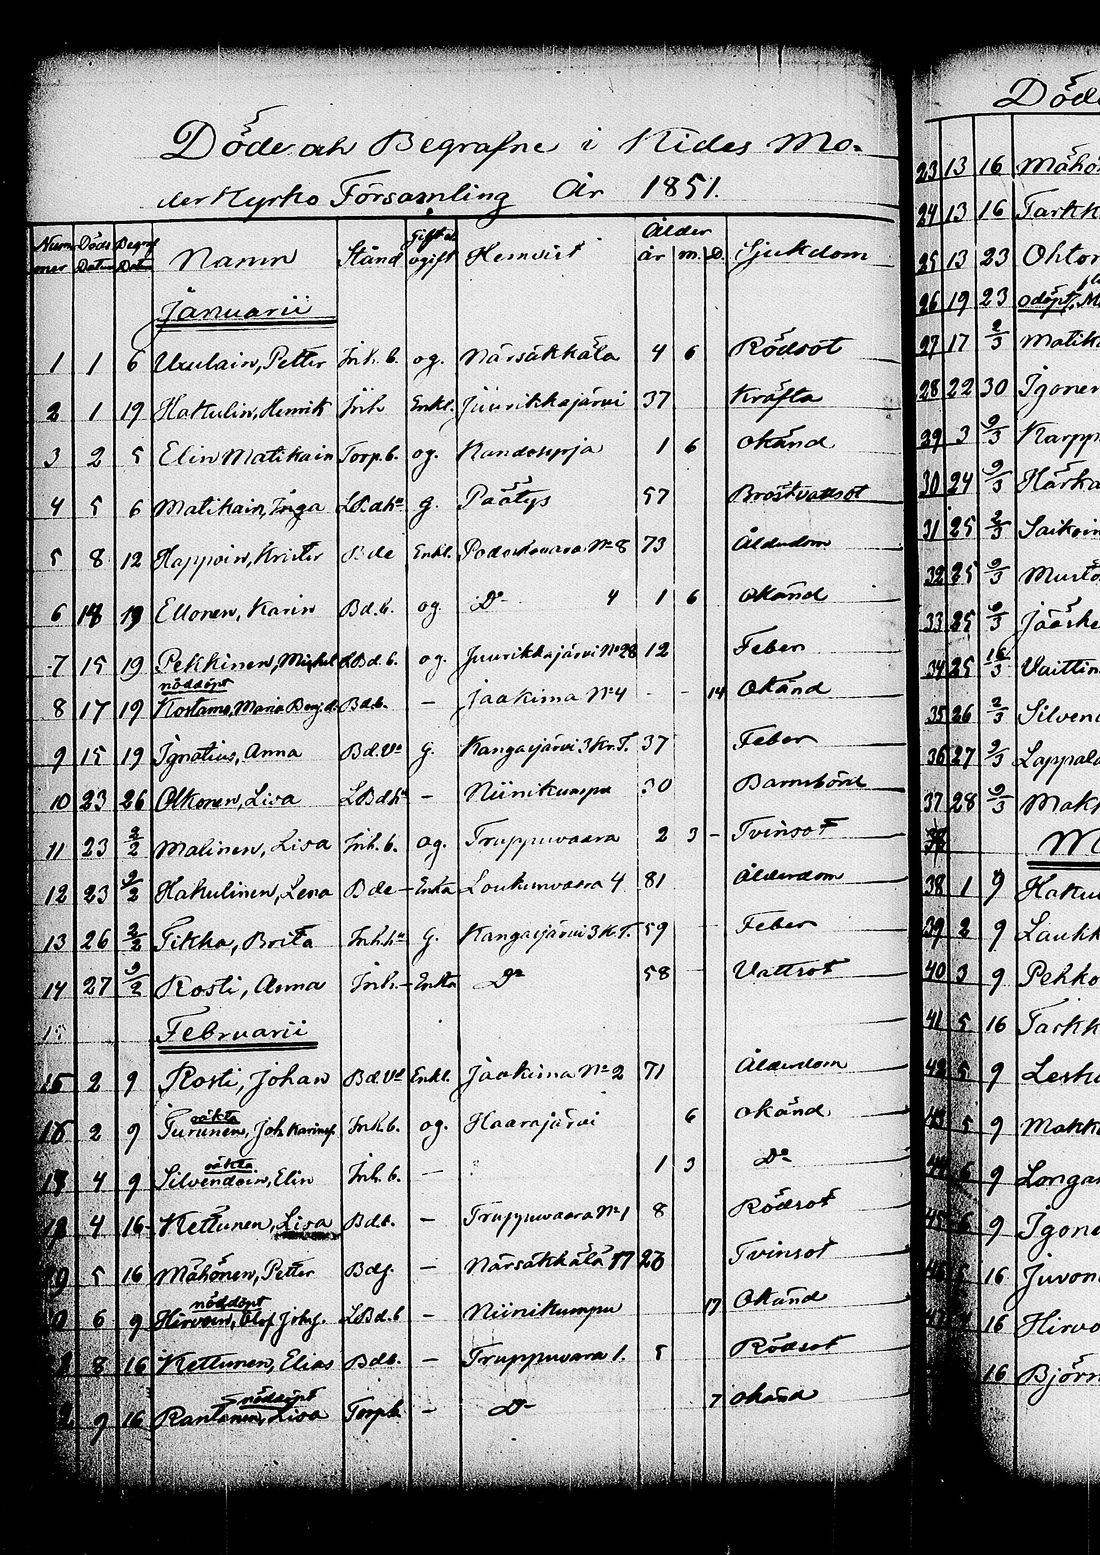 Döde och Begrafne i Kides Mo-
derkyrko Församling År 1851.
Nummer Döds Datum Begraf Datum Namn Stånd Gift el. ogift Hemvist Ålder år m. D. Sjukdom
Januarii
1 1 6 Petter Inh. b. og. Närsäkkälä 4 6 Rödsot
2 1 19 Hakulin, Henrik Inh Enkl. Juurikkajärvi 37 Kräfta
3 2 5 Elin Matikain Torp. b. og. 1 6 okänd
4 5 6 Matikain, Inga g. Päätys 57 Bröstvattsot
5 8 12 Happoin, Krister Bde Enkl. No 8 73 Ålderdom
6 18 19 Ellonen, Karin Bd. b. og. Do 4 1 6 okänd
7 15 19 Pekkinen, Michel LBd. b. og. Juurikkajärvi No 28 12 Feber
nöddöpt
8 17 19 Kostamo, Maria Benj. d. Bdb. — Jaakima No 4 - - 14 Okänd
9 15 19 Ignatius, Anna Bd. g. Kangasjärvi 3 Kr. T. 37 Feber
10 23 26 Olkonen, Lisa LBdh — Niinikumpu 30 Barnsbörd
11 23 2/2 Malinen, Lisa Inh. b. og. Truppuvaara 2 3 – Tvinsot
12 23 2/2 Hakulinen, Lena Bde – Enka 4 81 Ålderdom
13 26 2/2 Tikka, Brita Inh. g. Kangasjärvi 3 K. T. 59 Feber
14 27 2/2 Kosti, Anna Inh. – Enka Do 58 Vattsot
15 Februarii
15 2 9 Kosti, Johan Bd. Enkl. Jaakima No 2 71 Ålderdom
oäkta
16 2 9 Turunen, Joh Inh. b. og. Haarajärvi 6 okänd
oäkta
4 9 Silvendoin, Elin Inh. b. — 1 3 Do
4 16 Kettunen, Lisa Bdb. — Truppuvaara No 1 8 Rödsot
5 16 Mähönen, Petter Bdg. — Närsäkkälä 17 Tvinsot
nöddöpt
6 9 Hirvoin, Olof LBd. b — Niinikumpu 17 Okänd
8 16 Kettunen, Elias Bdb. — Truppuvaara 1. 5 Rödsot
nöddöpt
9 16 Rantanen, Lisa Torpb. — Do 7 okänd
Död
23 13 16 Mähö
24 13 16 Tarkk
25 13 23 Ohton
26 19 23 odöpt, M
27 17 2/3 Matika
28 22 30 Igonen
29 3 2/3 Karpp
30 24 2/3 Härka
31 25 2/3 Saikoin
32 25 2/3 Musto
33 25 2/3 Jääske
34 25 16/3 Vaittin
35 26 2/3 Silven
36 27 2/3 Lappala
37 28 2/3 Makk
M
38 1 9 Haku
39 2 9 Laukk
40 3 9 Pekko
41 5 16 Tarkk
42 5 9 Lesk
43 5 9 Makk
44 6 9 Longa
45 6 9 Igone
16 Juvon
16 Hirvo
16 Björn